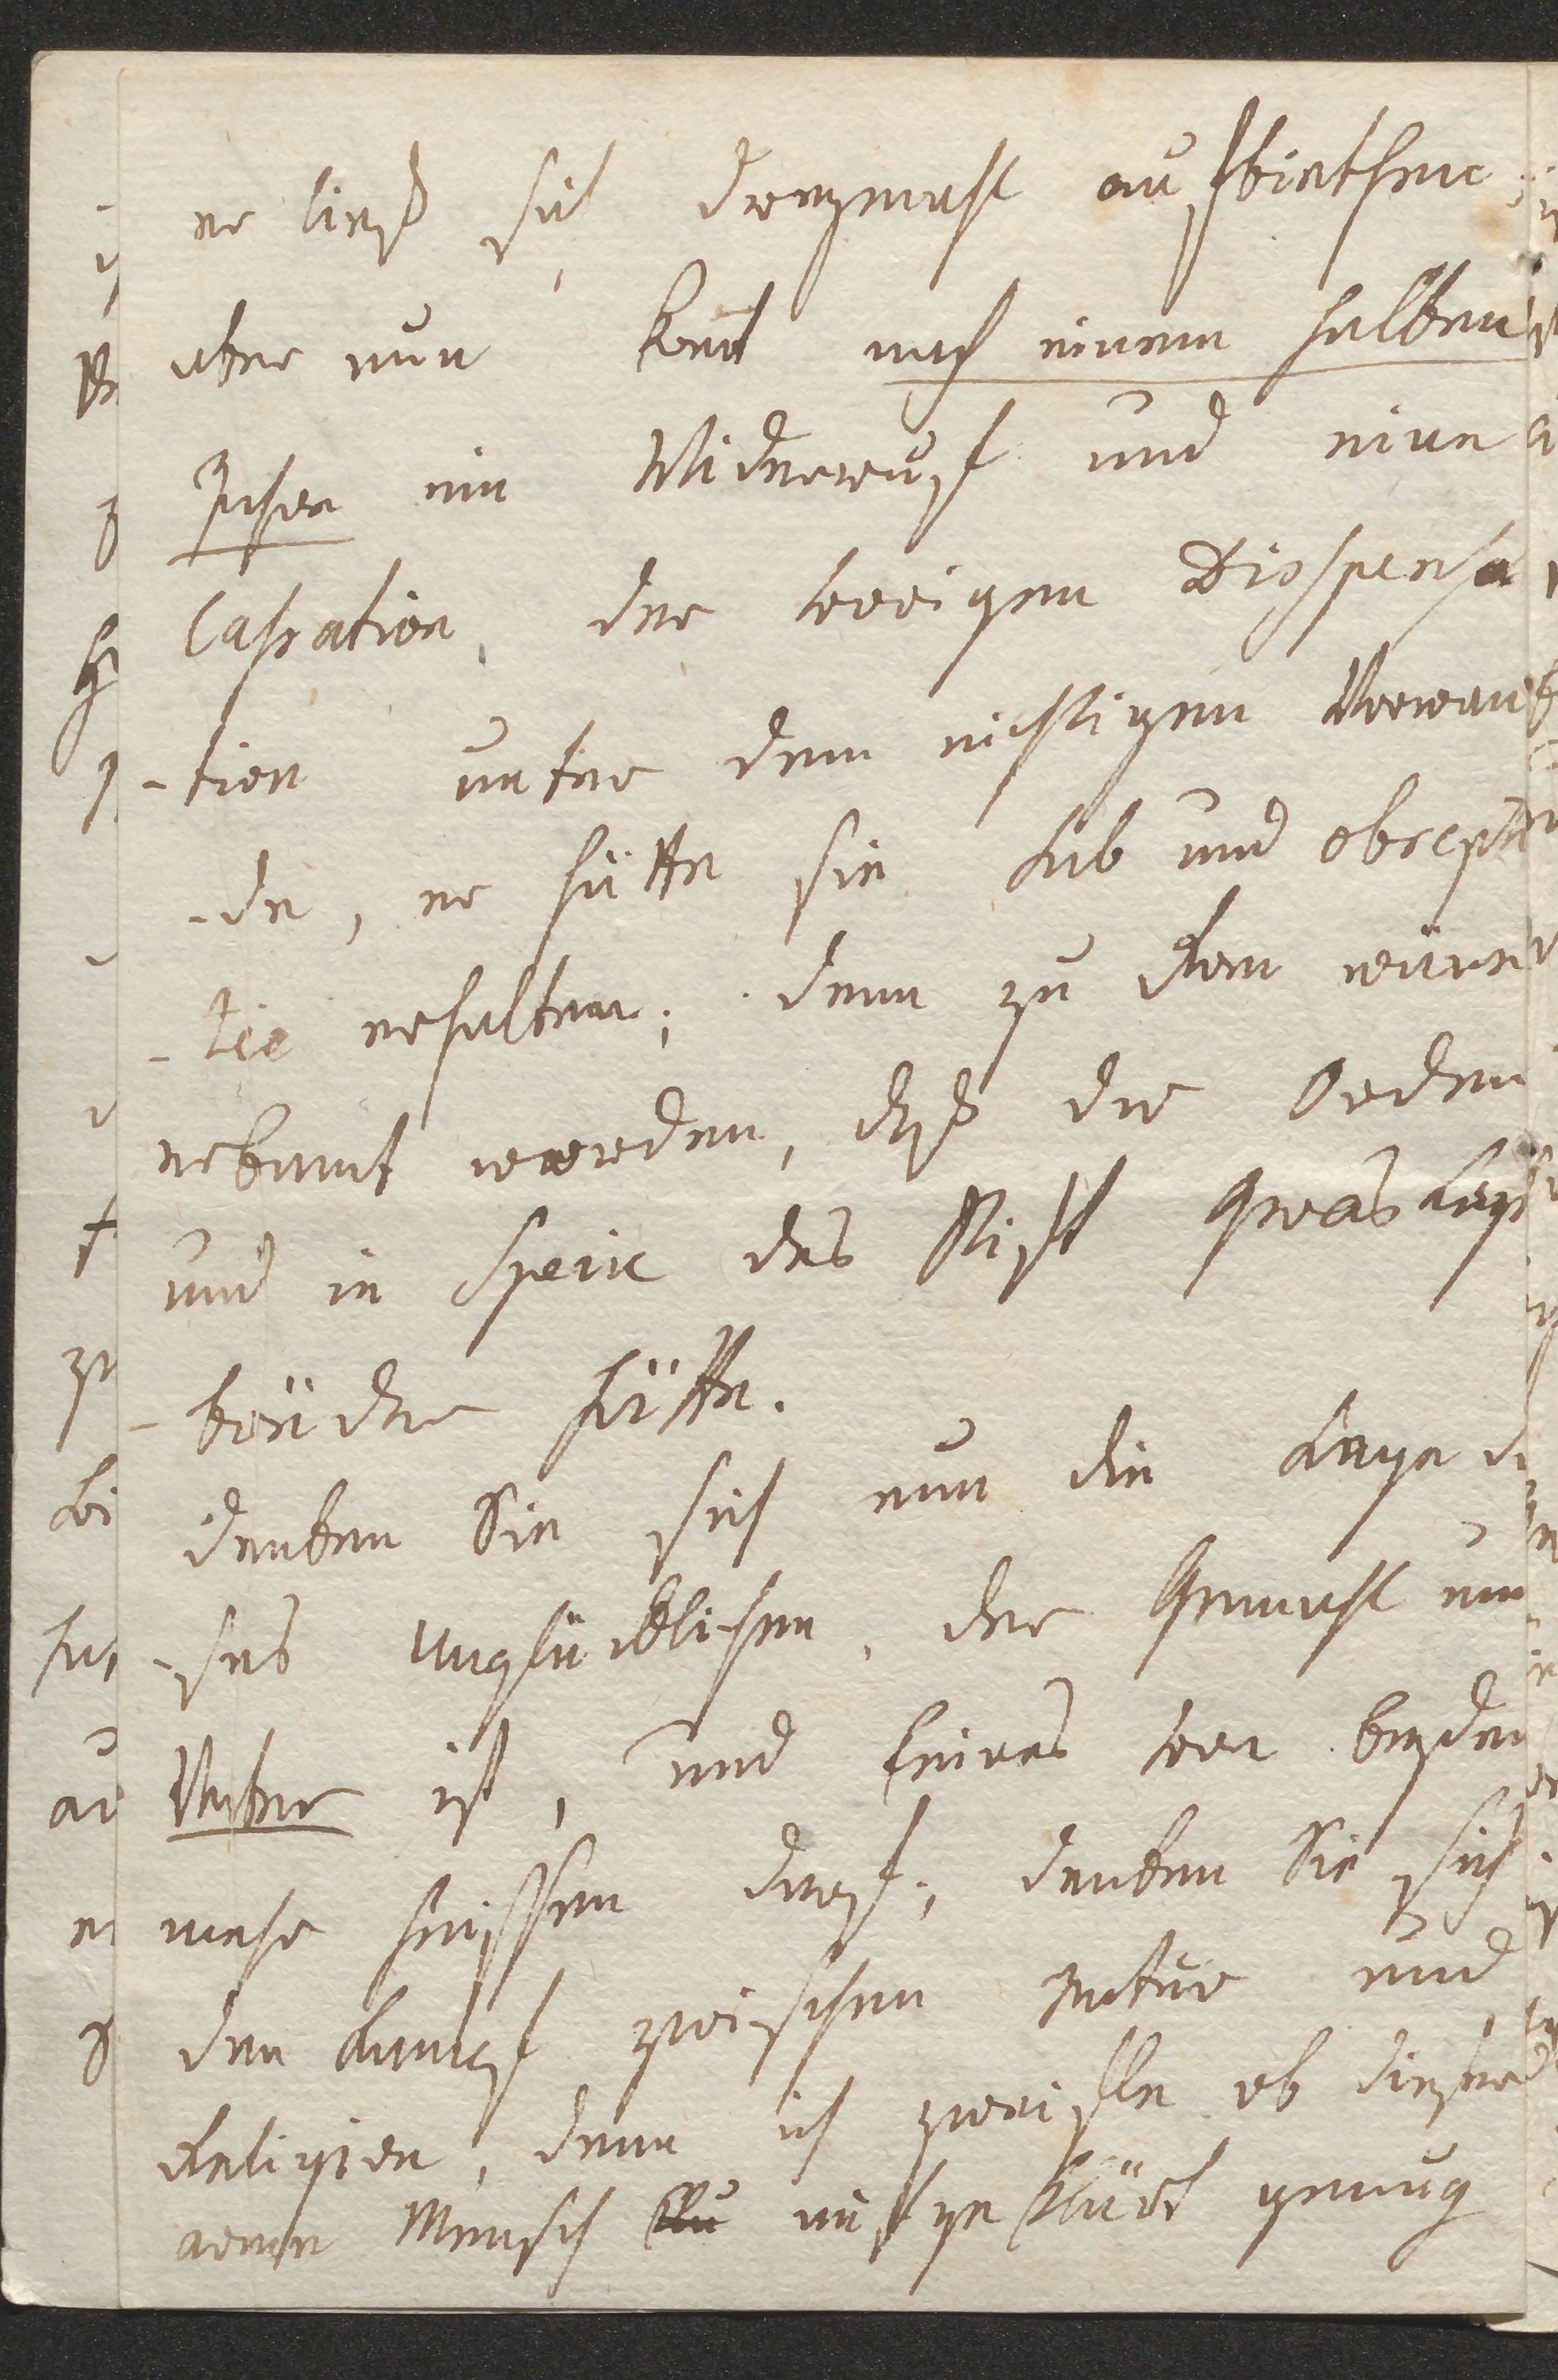 er ließ sich dreymahl aufbiethen;
aber nun kömt nach einem halben
Jahre ein Widerruf und eine
Cassation, der vorigen Dispensa
-tion unter dem nichtigen Vorwan
-de, er hätte sie sub und obrepti
-tie erhalten; denn zu dem wären
erkannt worden, daß die Orden
und in Specie das Stift
-brüder hätte.
denken Sie sich nun die Lage die
-ses Unglücklichen, der Gemahl und
Vater ist, und keines von beyden
mehr heissen darf; denken Sie sich
den Kampf zwischen Natur und
Religion, denn ich zweifle ob dieser
arme Mensch aufgeklärt genug